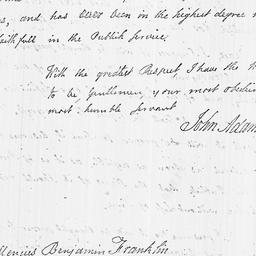 , and has ever been in the highest degree
faithfull in the Publick Service.
With the greatest Respect, I have the
to be, Gentlemen your most obedien
most humble Servant
John Adam
Benjamin Franklin